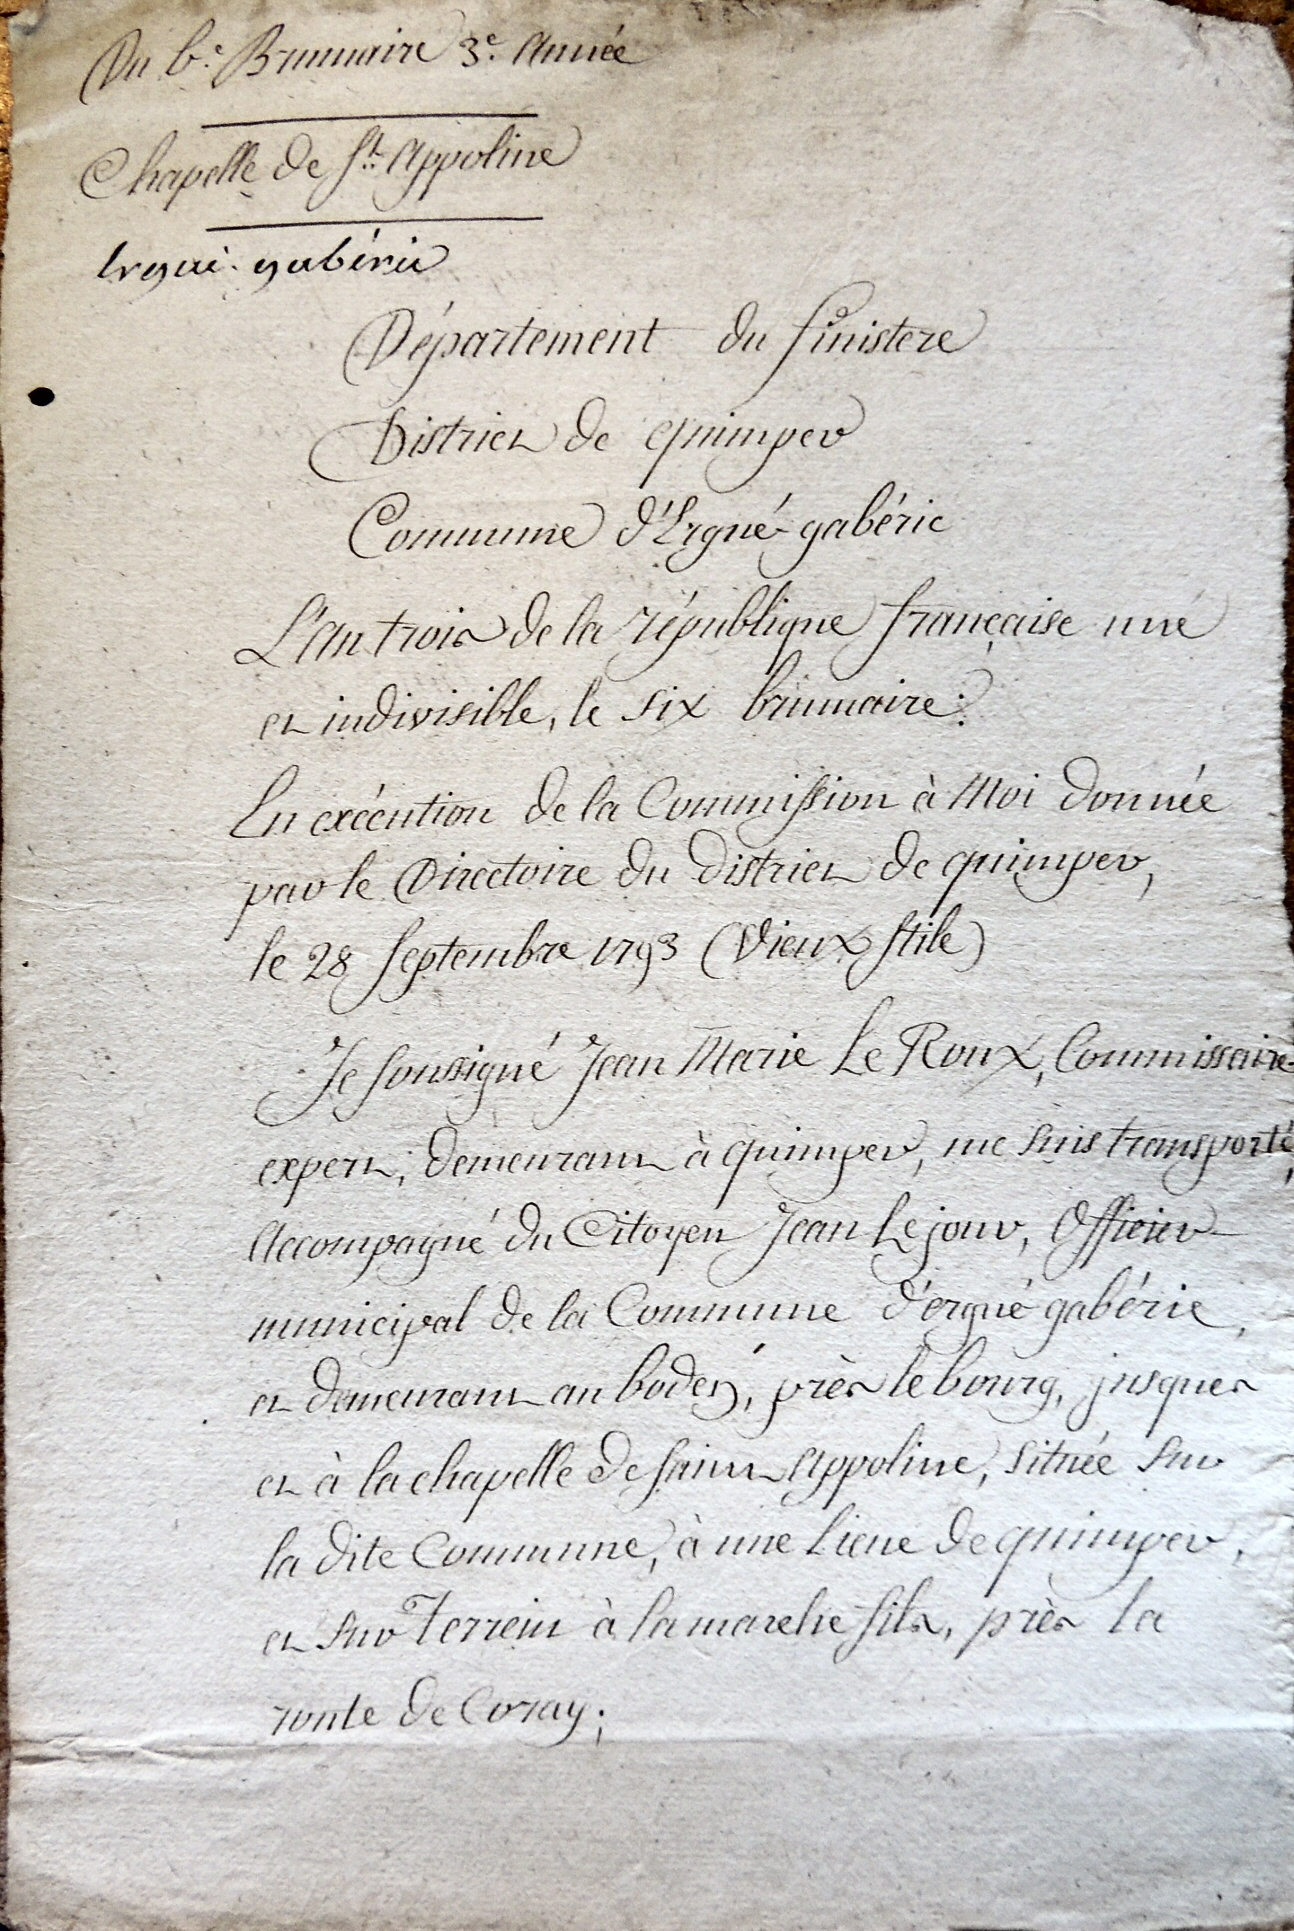 Du 6.e Brumaire 3.e Année
Chapelle de St. Appoline
Ergué-gabéric
Département du finistere
District de quimper
Commune d'Ergué-gabéric
L'An trois de la république française une
et indivisible, le six brumaire:
En exécution de la Commission à Moi donnée
par le Directoire du District de quimper,
le 28 Septembre 1793 (Vieux Stile)
Je Soussigné Jean Marie Le Roux, Commissaire-
expert, demeurant à quimper, me suis transporté,
Accompagné du Citoyen Jean Le jour, Officier
municipal de la Commune d'ergué gabéric,
et demeurant au bodez, près le bourg, jusques
et à la chapelle de Saint Appoline, située sur
la dite Commune, à une Lieue de quimper,
et sur Terrein à lamarche fils, près la
route de Coray;